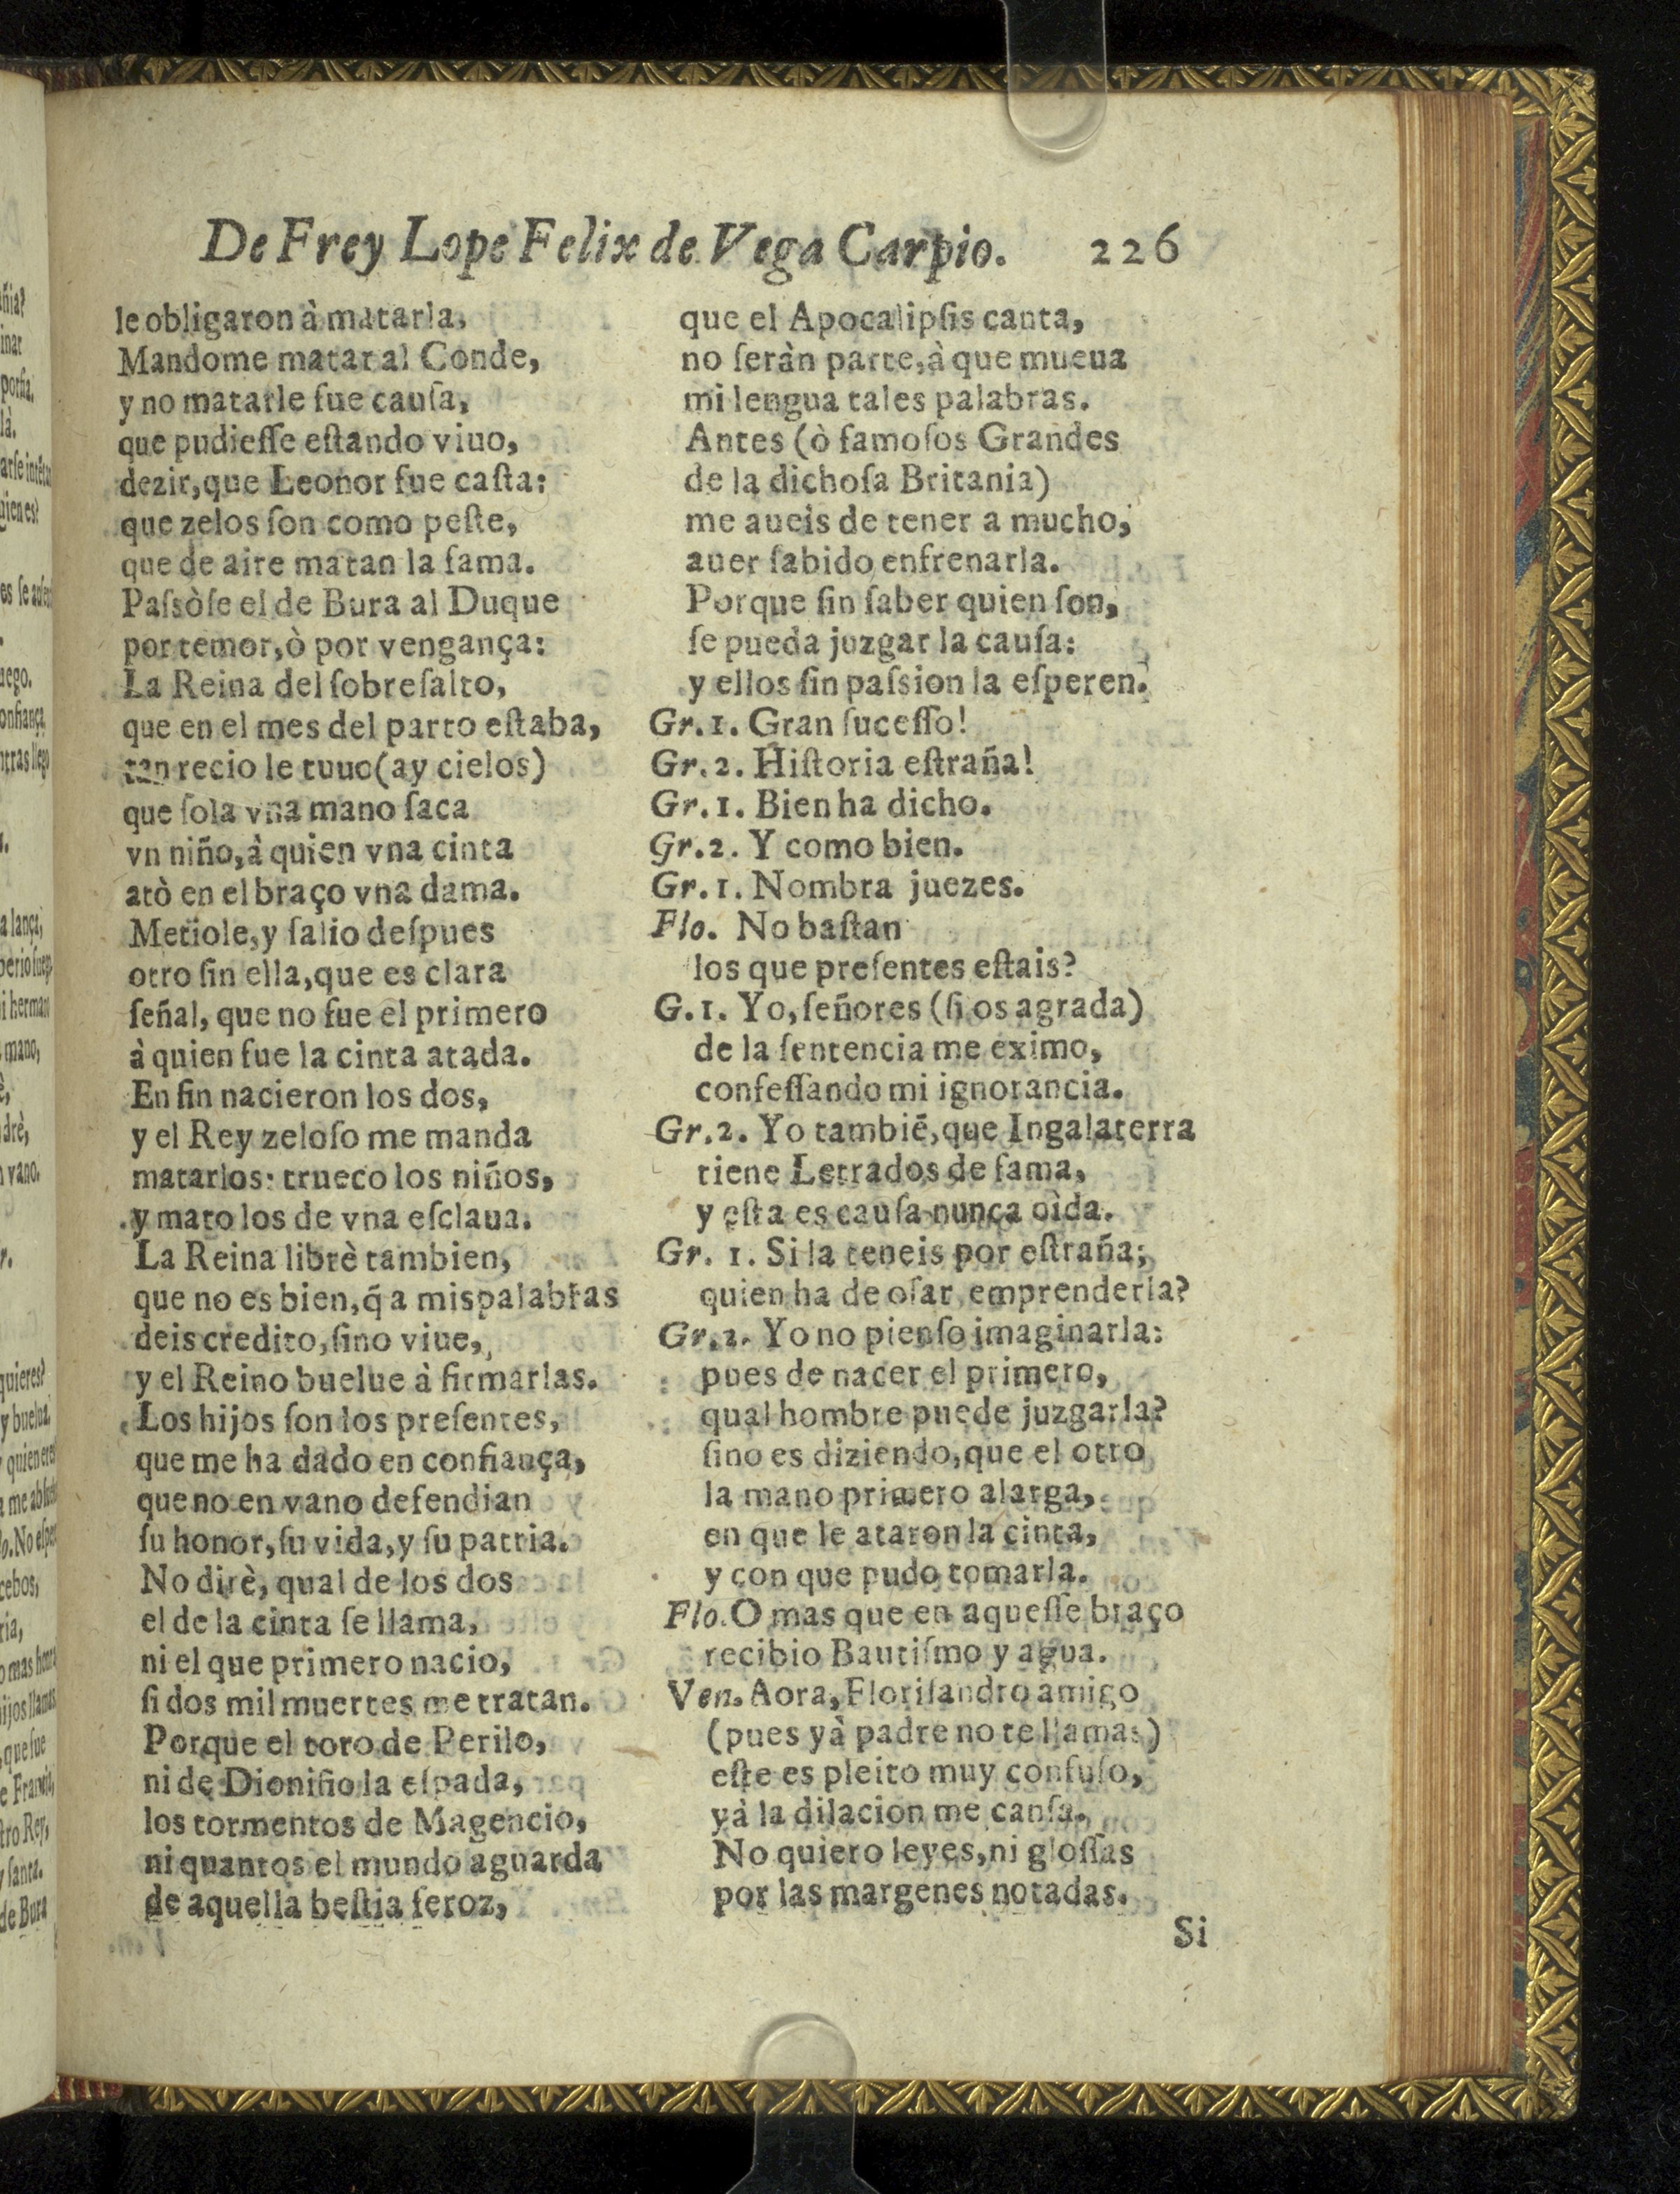 De Frey Lope Felix de Vega Carpio. 226
le obligaron à matarla,
Mandome matar al Conde,
y no matarle fue cauſa,
que pudieſſe eſtando viuo,
dezir, que Leonor fue caſta:
que zelos ſon como peſte,
que de aire matan la fama.
Paſsòſe el de Bura al Duque
por temor, ò por vengança:
La Reina del ſobreſalto,
que en el mes del parto eſtaba,
tan recio le tuuo (ay cielos)
que ſola vna mano ſaca
vn niño, à quien vna cinta
atò en el braço vna dama.
Metiole, y ſalio deſpues
otro ſin ella, que es clara
ſeñal, que no fue el primero
à quien fue la cinta atada.
En fin nacieron los dos,
y el Rey zeloſo me manda
matarlos: trueco los niños,
y mato los de vna eſclaua.
La Reina librè tambien,
que no es bien, q̃ a mis palabras
deis credito, ſino viue,
y el Reino buelue à firmarlas.
Los hijos ſon los preſentes,
que me ha dado en confiança,
que no en vano defendian
ſu honor, ſu vida, y ſu patria.
No dirè, qual de los dos
el de la cinta ſe llama,
ni el que primero nacio,
ſi dos mil muertes me tratan.
Porque el toro de Perilo,
ni de Dioniſio la eſpada,
los tormentos de Magencio,
ni quantos el mundo aguarda
de aquella beſtia feroz,
que el Apocalipſis canta,
no ſeràn parte, à que mueua
mi lengua tales palabras.
Antes (ò famoſos Grandes
de la dichoſa Britania)
me aueis de tener a mucho,
auer ſabido enfrenarla.
Porque ſin ſaber quien ſon,
ſe pueda juzgar la cauſa:
y ellos ſin paſsion la eſperen.
Gr. 1. Gran ſuceſſo!
Gr. 2. Hiſtoria eſtraña!
Gr. 1. Bien ha dicho.
Gr. 2. Y como bien.
Gr. 1. Nombra juezes.
Flo. No baſtan
los que preſentes eſtais?
G. 1. Yo, ſeñores (ſi os agrada)
de la ſentencia me eximo,
confeſſando mi ignorancia.
Gr. 2. Yo tambiē, que Ingalaterra
tiene Letrados de fama,
y eſta es cauſa nunca oìda.
Gr. 1. Si la teneis por eſtraña;
quien ha de oſar emprenderla?
Gr. 2. Yo no pienſo imaginarla:
pues de nacer el primero,
qual hombre puede juzgarla?
ſino es diziendo, que el otro
la mano primero alarga,
en que le ataron la cinta,
y con que pudo tomarla.
Flo. O mas que en aqueſſe braço
recibio Bautiſmo y agua.
Ven. Aora, Floriſandro amigo
(pues yà padre no te llamas)
eſte es pleito muy confuſo,
yà la dilacion me canſa.
No quiero leyes, ni gloſſas
por las margenes notadas.
Si